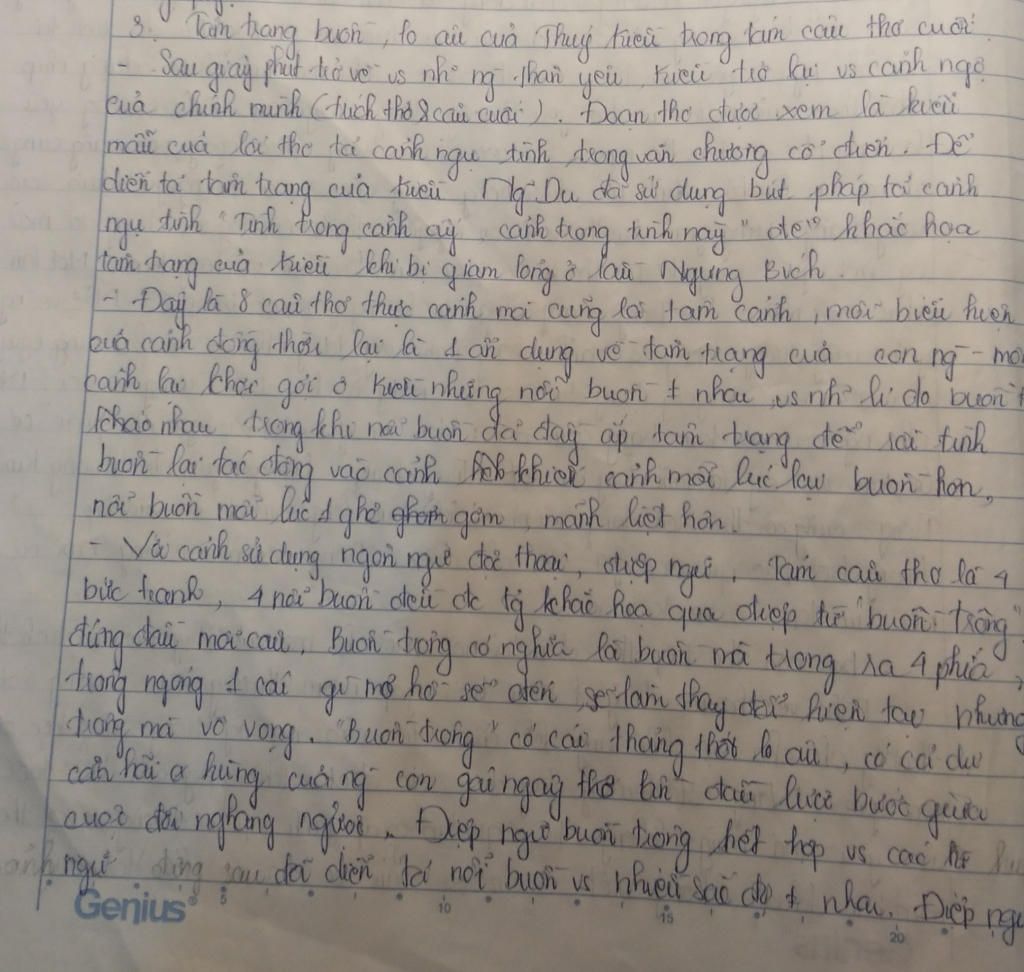 3. Tâm trạng buồn, lo âu của Thuý Kiều trong tám câu thơ cuối.
- Sau giây phút trở về vs nh~ ng~ thân yêu, Kiều trở lại vs cảnh ngộ
của chính mình (trích thơ 8 câu cuối). Đoạn thơ được xem là kiểu
mẫu của lối thơ tả cảnh ngụ tình trong văn chương cổ điển. Để
diễn tả tâm trạng của Kiều, Ng~ Du đã sử dụng bút pháp tả cảnh
ngụ tình "Tình trong cảnh ấy, cảnh trong tình này" để khắc họa
tâm trạng của Kiều khi bị giam lỏng ở lầu Ngưng Bích.
- Đây là 8 câu thơ thực cảnh mà cũng là tâm cảnh, mỗi biểu hiện
của cảnh đồng thời lại là 1 ẩn dụng về tâm trạng của con ng~ - mỗi
cảnh lại khơi gợi ở Kiều những nỗi buồn ≠ nhau, vs nh~ lí do buồn
khác nhau trong khi nỗi buồn đã đầy ắp tâm trạng để rồi tình
buồn lại tác động vào cảnh khiến cảnh mỗi lúc lại buồn hơn,
nỗi buồn mỗi lúc 1 ghê gớm, mãnh liệt hơn.
- Với cách sử dụng ngôn ngữ độc thoại, điệp ngữ. Tám câu thơ là 4
bức tranh, 4 nỗi buồn đều đc tg khắc họa qua điệp từ "buồn trông"
đứng đầu mỗi câu, Buồn trông có nghĩa là buồn mà trông ra 4 phía,
trông ngóng 1 cái gì mơ hồ sẽ đến, sẽ làm thay đổi hiện tại nhưng
trông mà vô vọng. "Buồn trông" có cái thảng thốt lo âu, có cái dự
cảm hãi hùng của ng~ con gái ngây thơ lần đầu lước bước giữa
cuộc đời ngang ngửa. Điệp ngữ buồn trông kết hợp vs các
ngữ đứng sau đã diễn tả nỗi buồn vs nhiều sắc độ ≠ nhau. Điệp ngữ
Genius 5
10
15
20